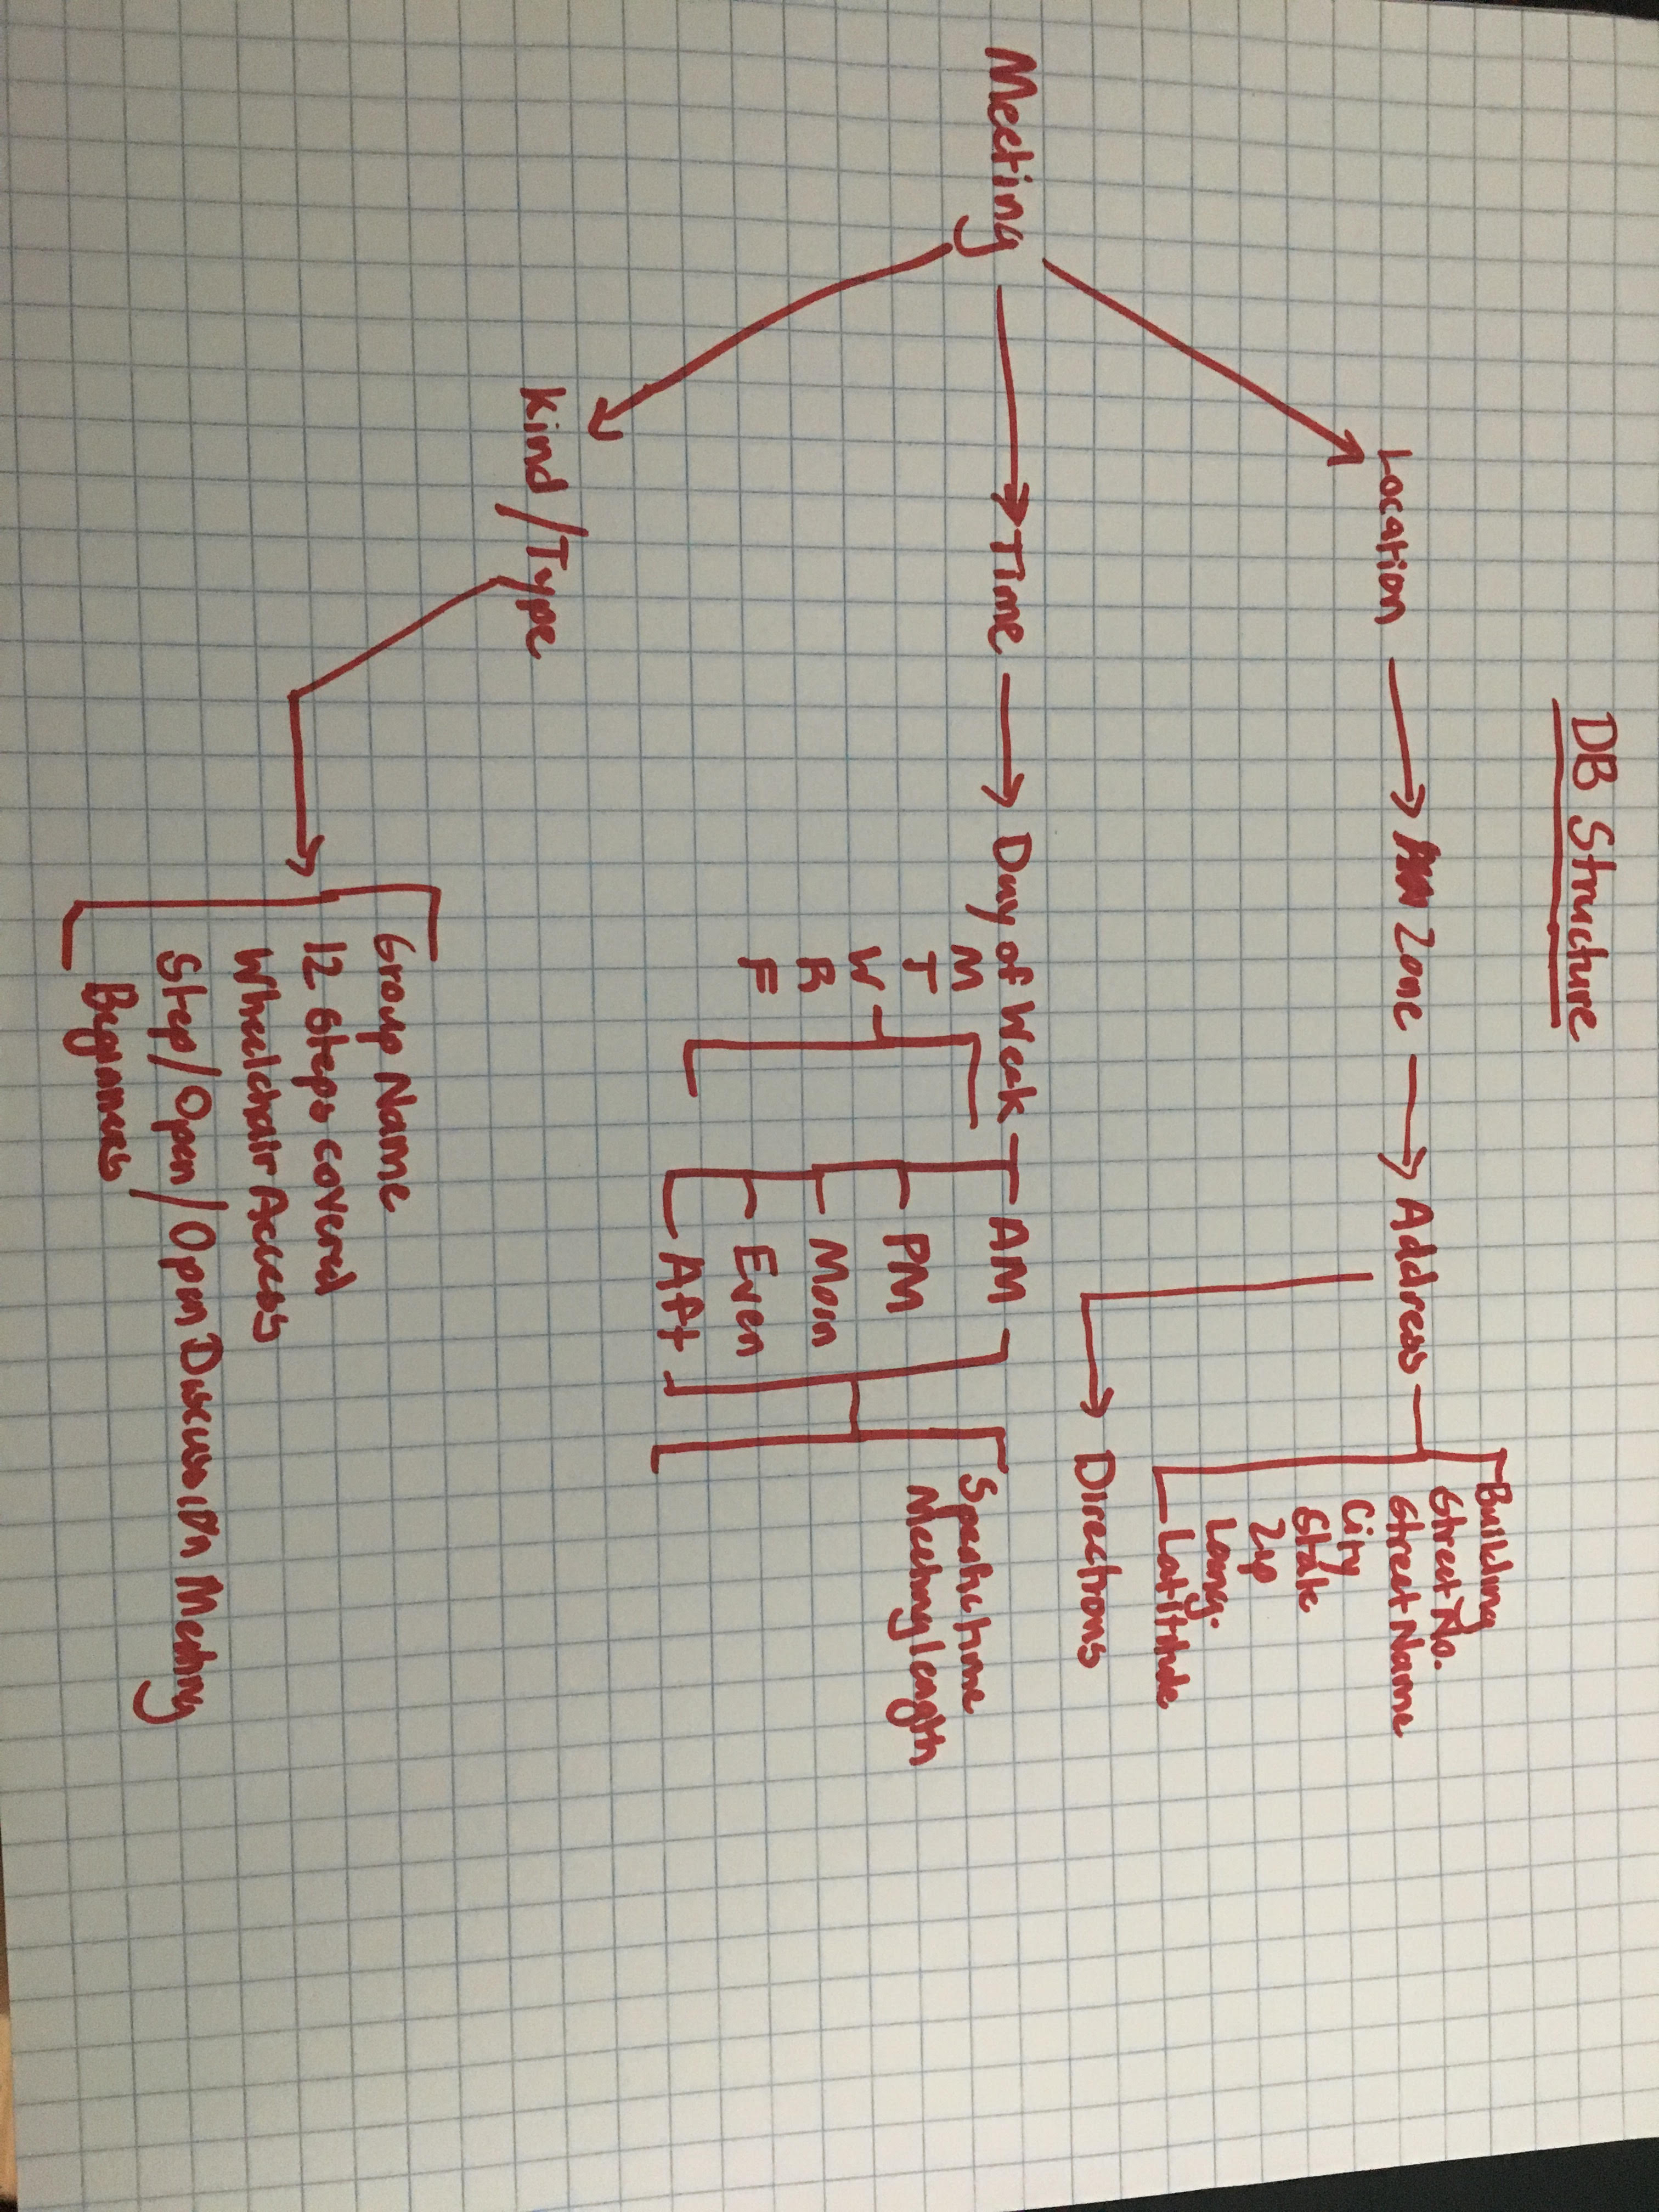 DB Structure
Location
Zone
Address
Building
Street No.
Street Name
City
State
Zip
Long.
Latititude
Directions
Meeting
Time
Day of Week
M
T
W
R
F
AM
PM
Morn
Even
Aft
Specific time
Meeting length
Kind/Type
Group Name
12 Steps covered
Wheelchair Access
Step/Open/Open Discussion Meeting
Beginners